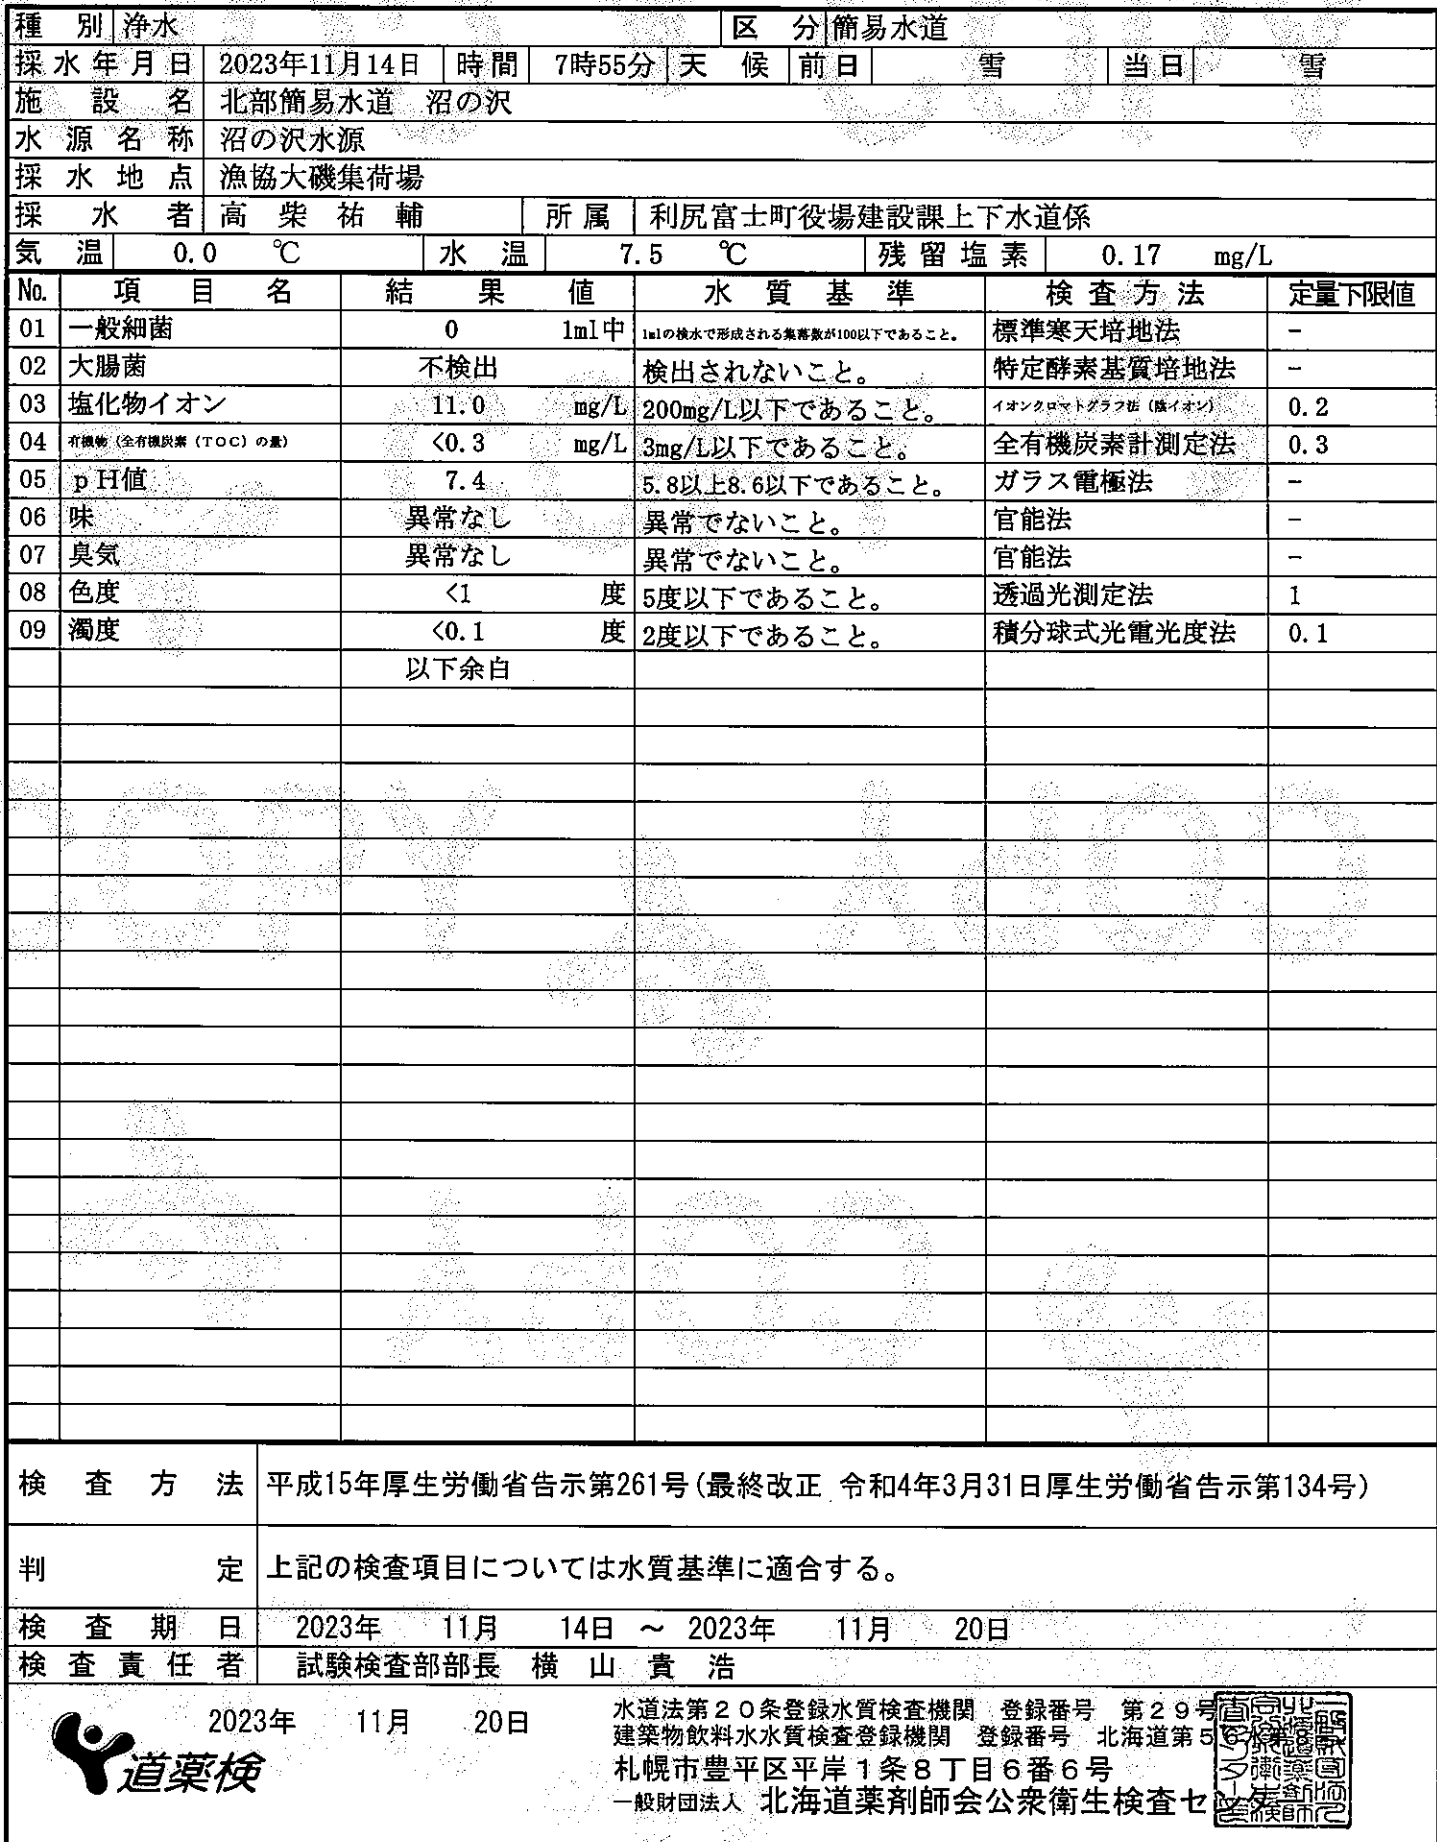 種 別 浄水 区 分 簡易水道
採水年月日 2023年11月14日 時間 7時55分 天 候 前日 雪 当日 雪
施 設 名 北部簡易水道 沼の沢
水 源 名 称 沼の沢水源
採 水 地 点 漁協大磯集荷場
採 水 者 高 柴 祐 輔 所属 利尻富士町役場建設課上下水道係
気 温 0.0 ℃ 水 温 7.5 ℃ 残留塩素 0.17 mg/L
No. 項 目 名 結 果 値 水 質 基 準 検 査 方 法 定量下限値
01 一般細菌 0 1ml中 1mlの検水で形成される集落数が100以下であること。 標準寒天培地法 -
02 大腸菌 不検出 検出されないこと。 特定酵素基質培地法 -
03 塩化物イオン 11.0 mg/L 200mg/L以下であること。 イオンクロマトグラフ法（陰イオン） 0.2
04 有機物（全有機炭素（TOC）の量） <0.3 mg/L 3mg/L以下であること。 全有機炭素計測定法 0.3
05 pH値 7.4 5.8以上8.6以下であること。 ガラス電極法 -
06 味 異常なし 異常でないこと。 官能法 -
07 臭気 異常なし 異常でないこと。 官能法 -
08 色度 <1 度 5度以下であること。 透過光測定法 1
09 濁度 <0.1 度 2度以下であること。 積分球式光電光度法 0.1
以下余白
検 査 方 法 平成15年厚生労働省告示第261号(最終改正 令和4年3月31日厚生労働省告示第134号)
判 定 上記の検査項目については水質基準に適合する。
検 査 期 日 2023年 11月 14日 ～ 2023年 11月 20日
検 査 責 任 者 試験検査部部長 横 山 貴 浩
2023年 11月 20日
道薬検
水道法第２０条登録水質検査機関 登録番号 第２９号
建築物飲料水水質検査登録機関 登録番号 北海道第５６水第
札幌市豊平区平岸１条８丁目６番６号
一般財団法人 北海道薬剤師会公衆衛生検査セ